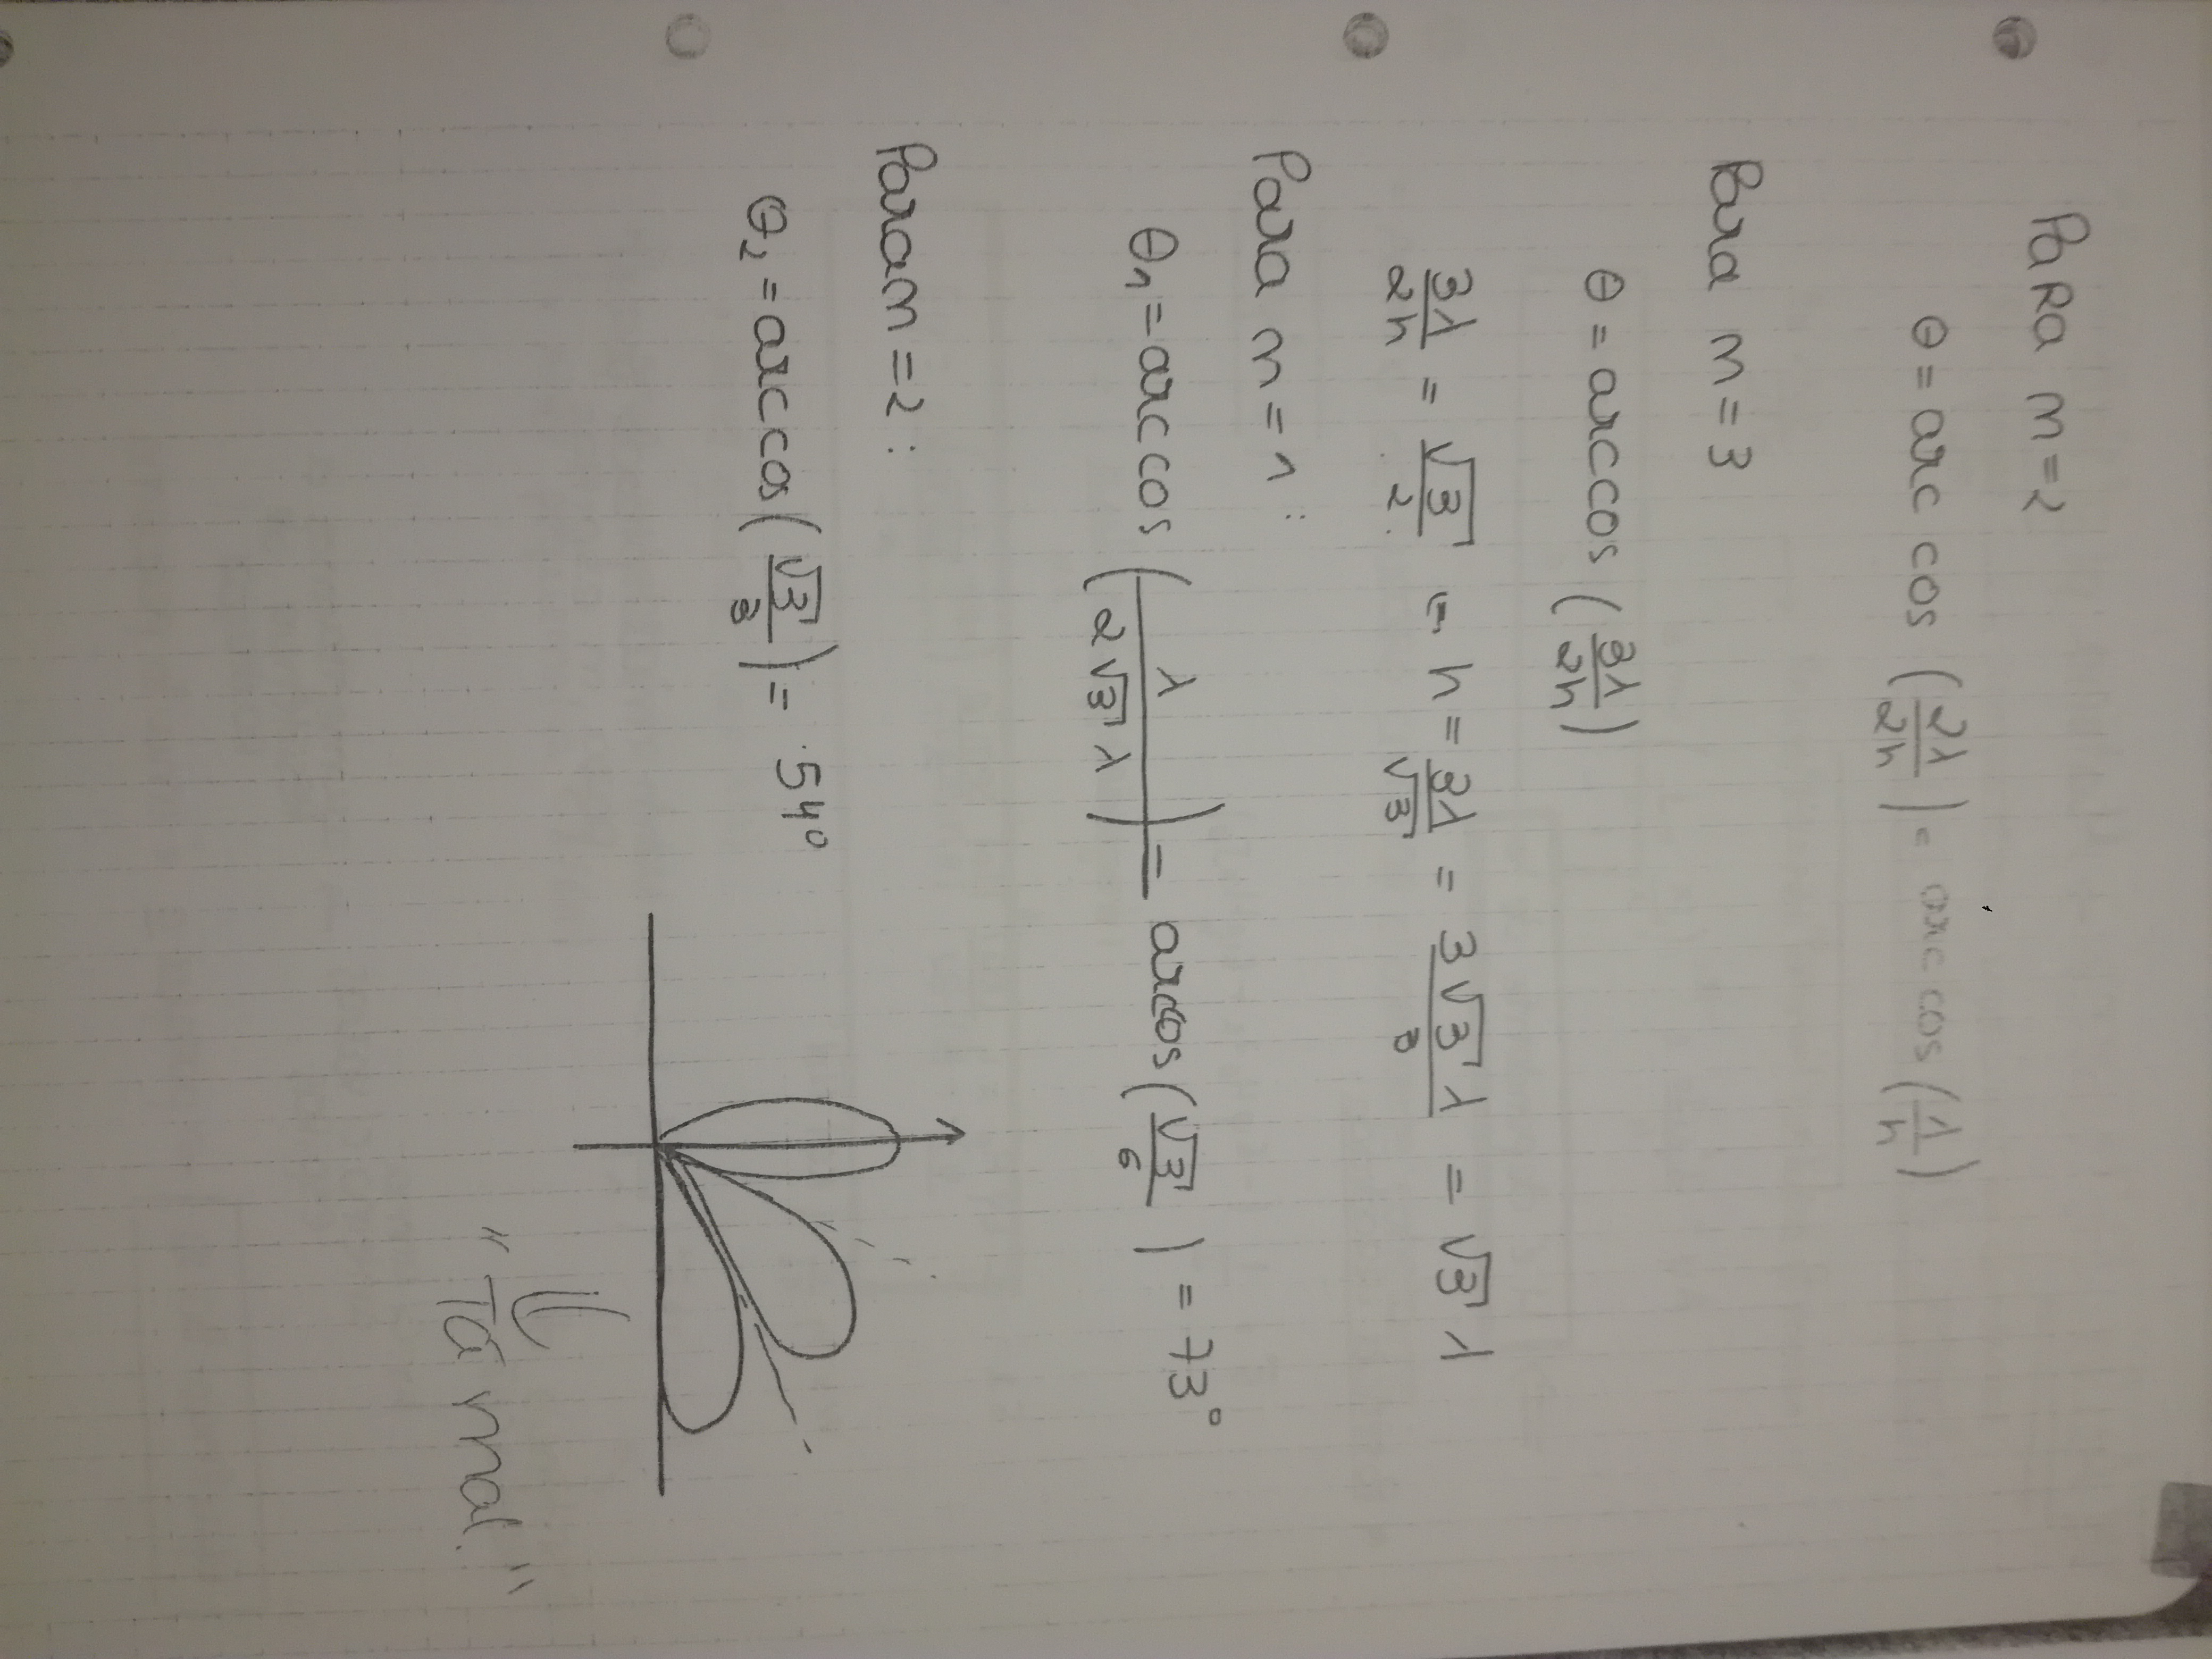 PaRa m=2
θ = arc cos (2λ/2h) = arc cos (λ/h)
Para m=3
θ = arccos (3λ/2h)
3λ/2h = √3/2 = h = 3λ/√3 = 3√3 λ/3 = √3 λ
Para m=1:
θ1 = arccos (λ/2√3 λ) = arcos (√3/6) = 73°
Param=2:
θ2 = arccos (√3/3) = 54°
"Tá mal."